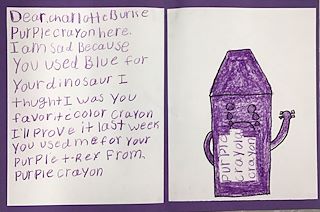 Dear. charlotte Burke
Purple crayon here.
I am sad Because
You used Blue for
Your dinosaur I
thught I was you
favorite color crayon
I'll Prove it last week
You used me for your
PurPle t-rex From,
Purple crayon
Purple
Crayola
crayon